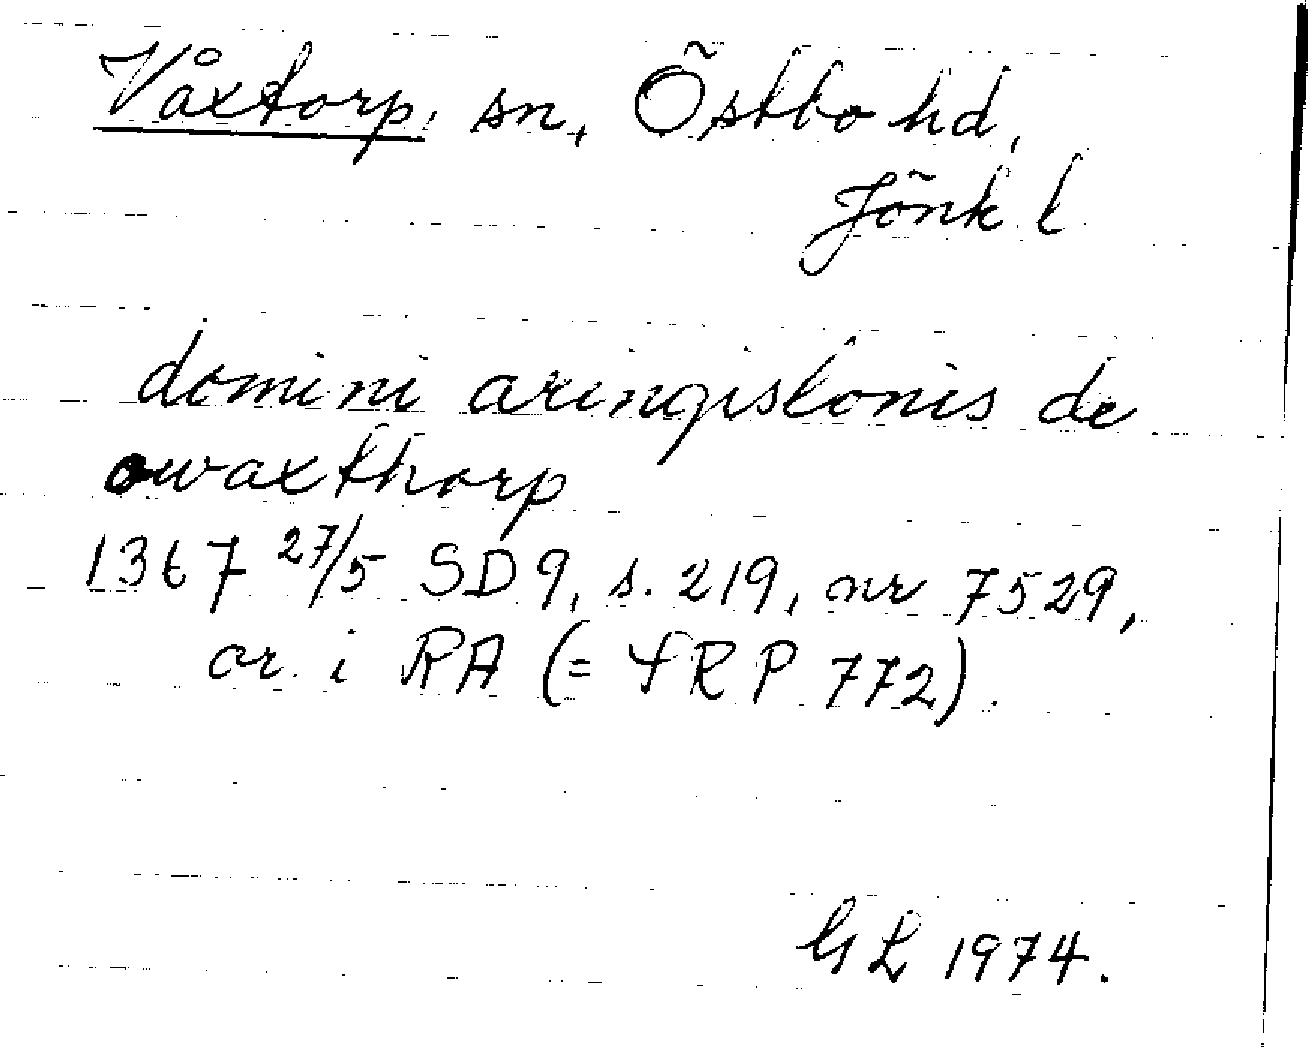 Våxtorp, sn, Östbo hd,
Jönk l
domini aringislonis de
owaxthorp
1367 27/5 SD 9, s. 219, nr 7529,
or. i RA (= RP 772).
GL 1974.